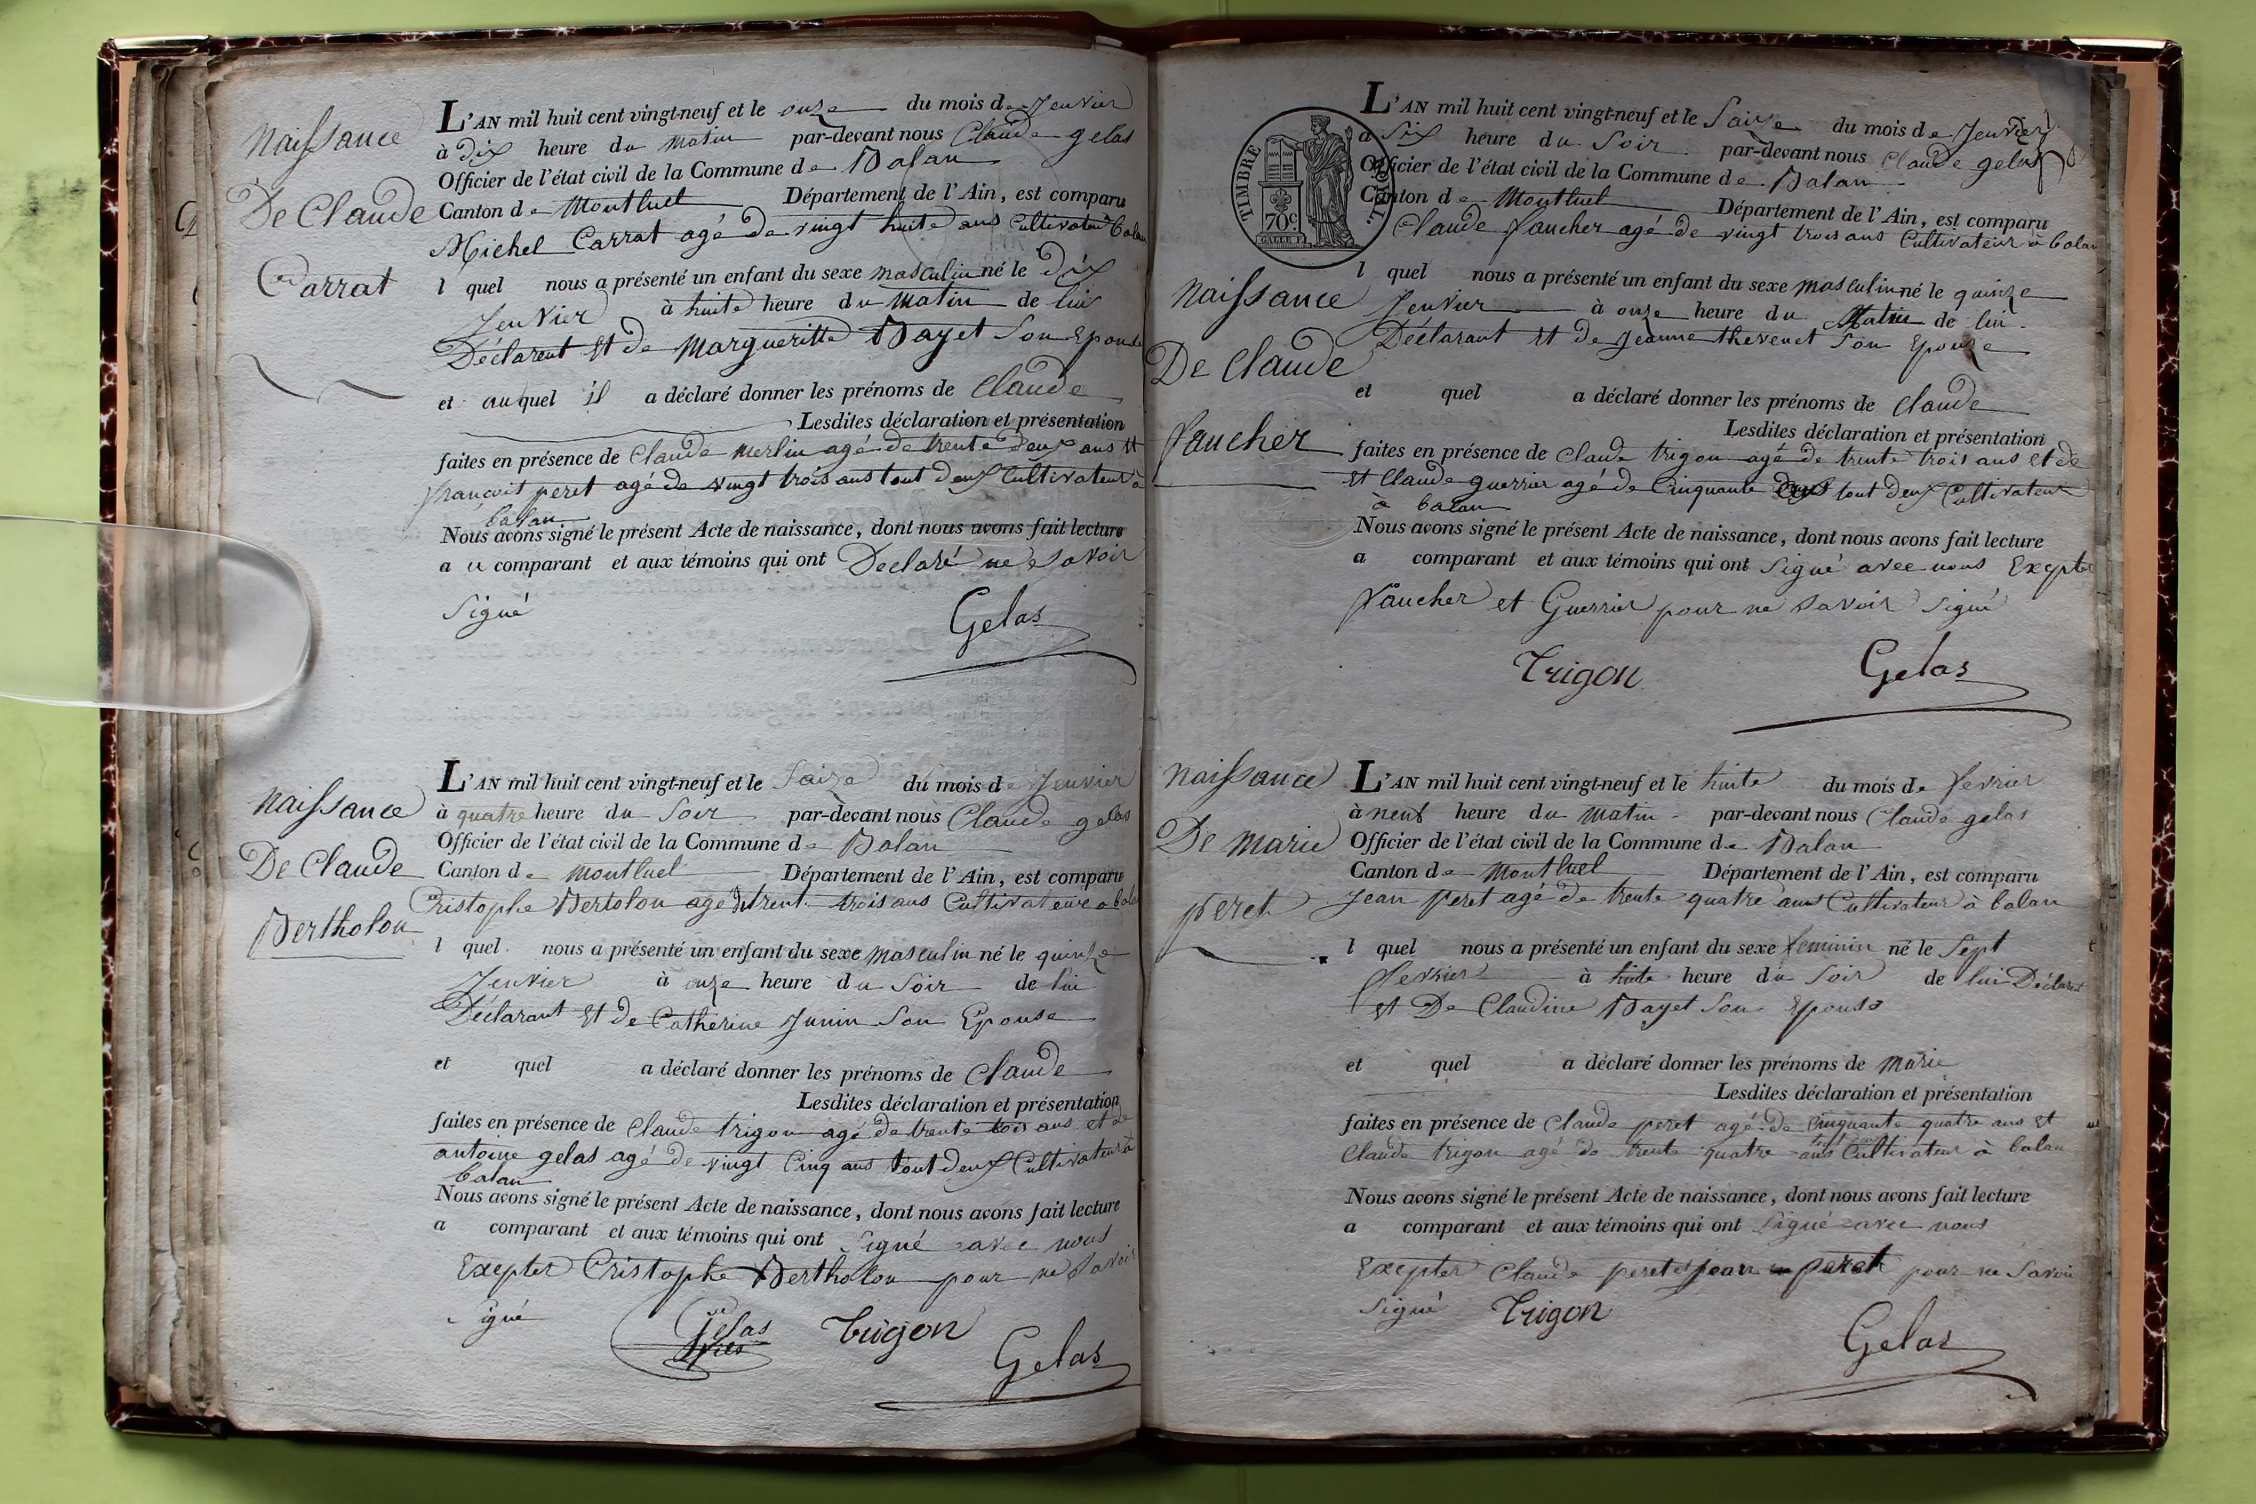 Naissance
De Claude
Carrat
L'AN mil huit cent vingt-neuf et le onze du mois de Jenvier
à dix heure du matin par-devant nous Claude gelas
Officier de l'état civil de la Commune de Balan
Canton de Montluel Département de l'Ain, est comparu
Michel Carrat agé de vingt huite ans Cultivateur à balan
l quel nous a présenté un enfant du sexe masculin né le dix
Jenvier à huite heure du matin de lui
Déclarent et de Margueritte Bayet Son Epouse
et auquel il a déclaré donner les prénoms de Claude
Lesdites déclaration et présentation
faites en présence de Claude merlin agé de trente deux ans et
françoit peret agé de vingt trois ans tout deux Cultivateur à
balan
Nous avons signé le présent Acte de naissance, dont nous avons fait lecture
a u comparant et aux témoins qui ont Declaré ne Savoir
Signé
Gelas
Naissance
De Claude
Bertholon
L'AN mil huit cent vingt-neuf et le Saize du mois de Jenvier
à quatre heure du Soir par-devant nous Claude gelas
Officier de l'état civil de la Commune de Balan
Canton de montluel Département de l'Ain, est comparu
Cristophe Bertolon agé de trent trois ans Cultivateur a balan
l quel nous a présenté un enfant du sexe masculin né le quinze
Jenvier à onze heure du Soir de lui
Déclarant et de Catherine Junin Son Epouse
et quel a déclaré donner les prénoms de Claude
Lesdites déclaration et présentation
faites en présence de Claude trigon agé de trente trois ans et de
antoine gelas agé de vingt Cinq ans tout deux Cultivateur à
balan
Nous avons signé le présent Acte de naissance, dont nous avons fait lecture
a comparant et aux témoins qui ont Signé avec nous
Exepter Cristophe Bertholon pour ne Savoir
Signé
Gelas
Trigon
Gelas
TIMBRE ROYAL.
70c
Naissance
De Claude
faucher
L'AN mil huit cent vingt-neuf et le Saize du mois de Jenvier
à Six heure du Soir par-devant nous Claude gelas
Officier de l'état civil de la Commune de Balan
Canton de Montluel Département de l'Ain, est comparu
Claude faucher agé de vingt trois ans Cultivateur à balan
l quel nous a présenté un enfant du sexe masculin né le quinze
Jenvier à onze heure du Matin de lui
Déclarant et de Jeanne thevenet Son Epouse
et quel a déclaré donner les prénoms de Claude
Lesdites déclaration et présentation
faites en présence de Claude trigon agé de trente trois ans et de
et Claude guerrier agé de Cinquante tout deux Cultivateur
à balan
Nous avons signé le présent Acte de naissance, dont nous avons fait lecture
a comparant et aux témoins qui ont Signé avec nous Exepter
faucher et Guerrier pour ne Savoir Signé
Trigon
Gelas
Naissance
De marie
peret
L'AN mil huit cent vingt-neuf et le huite du mois de fevrier
à neuf heure du matin par-devant nous Claude gelas
Officier de l'état civil de la Commune de Balan
Canton de Montluel Département de l'Ain, est comparu
Jean peret agé de trente quatre ans Cultivateur à balan
l quel nous a présenté un enfant du sexe feminin né le Sept
fevrier à huite heure du Soir de lui Déclarant
et De Claudine Bayet Son Epouse
et quel a déclaré donner les prénoms de marie
Lesdites déclaration et présentation
faites en présence de Claude peret agé de Cinquante quatre ans et
Claude trigon agé de trente quatre ans Cultivateur à balan
Nous avons signé le présent Acte de naissance, dont nous avons fait lecture
a comparant et aux témoins qui ont Signé avec nous
Exepter Claude peret et jean peret pour ne Savoir
Signé
Trigon
Gelas